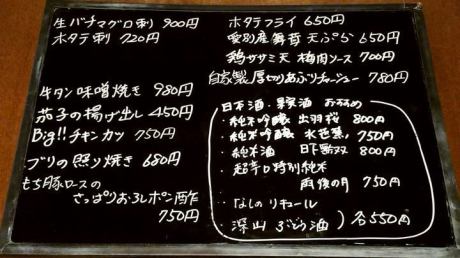 生バチマグロ刺 900円
ホタテ刺 720円
牛タン味噌焼き 980円
茄子の揚げ出し 450円
Big!! チキンカツ 750円
ブリの照り焼き 680円
もち豚ロースの
さっぱりおろしポン酢
750円
ホタテフライ 650円
愛別産舞茸天ぷら 650円
鶏ササミ天 梅肉ソース 700円
自家製厚切りあぶりチャーシュー 780円
日本酒・果実酒 おすすめ
・純米吟醸 出羽桜 800円
・純米吟醸 水芭蕉 750円
・純米酒 日下無双 800円
・超辛口特別純米
雨後の月 750円
・なしのリキュール
・深山ぶどう酒 ) 各550円